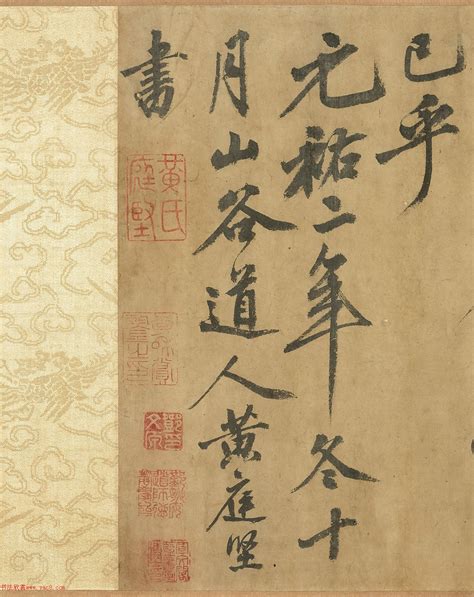 已乎
元祐二年冬十
月山谷道人黃庭堅
書
黃氏
庭堅